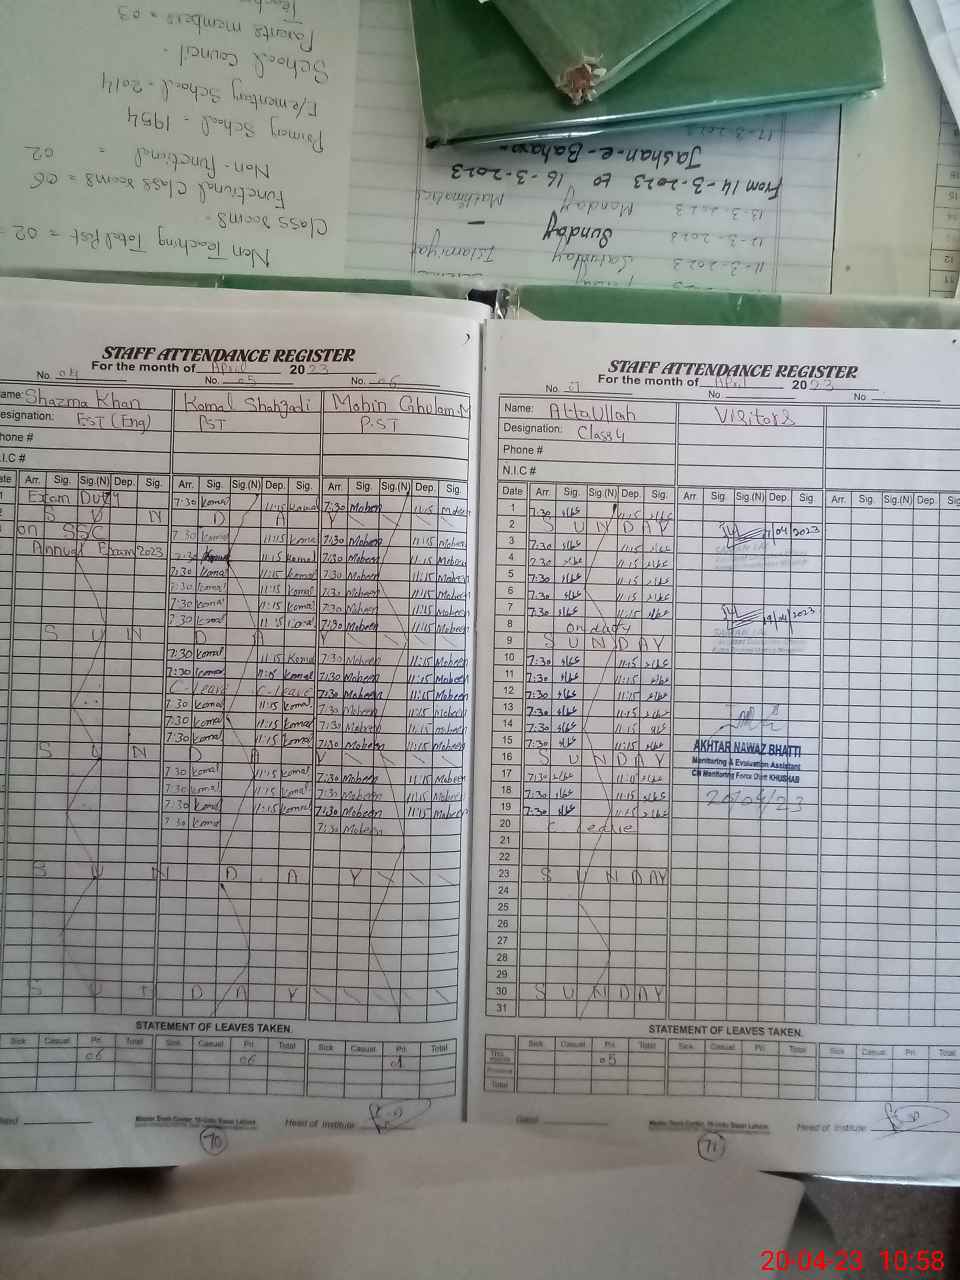 Parents members = 03
School Council -
Elementary School - 2014
Primary School = 1954
Non-Functional = 02
Functional Class rooms = 06
Class rooms -
Non Teaching Total Post = 02 =
17-3-2023
Jashan-e-Bahara-
From 14-3-2023 to 16-3-2023
13-3-2023 Monday Mathematics
12-3-2023 Sunday -
11-3-2023 Saturday Islamiyat
STAFF ATTENDANCE REGISTER
For the month of April 2023
No. 04 No. 05 No. 06
Name: Shazma Khan Komal Shahzadi Mobin Ghulam.M
Designation: EST (Eng) PST P.ST
Phone #
N.I.C #
Date Arr. Sig. Sig.(N) Dep. Sig. Arr. Sig. Sig.(N) Dep. Sig. Arr. Sig. Sig.(N) Dep. Sig.
Exam Duty 7:30 Komal 11:15 Komal 7:30 Mobeen 11:15 Mobeen
S U N D A Y
on SSC 7:30 Komal 11:15 Komal 7:30 Mobeen 11:15 Mobeen
Annual Exam 2023 7:30 Komal 11:15 Komal 7:30 Mobeen 11:15 Mobeen
7:30 Komal 11:15 Komal 7:30 Mobeen 11:15 Mobeen
7:30 Komal 11:15 Komal 7:30 Mobeen 11:15 Mobeen
7:30 Komal 11:15 Komal 7:30 Mobeen 11:15 Mobeen
7:30 Komal 11:15 Komal 7:30 Mobeen 11:15 Mobeen
S U N D A Y
7:30 Komal 11:15 Komal 7:30 Mobeen 11:15 Mobeen
7:30 Komal 11:15 Komal 7:30 Mobeen 11:15 Mobeen
C-Leave C-Leave 7:30 Mobeen 11:15 Mobeen
7:30 Komal 11:15 Komal 7:30 Mobeen 11:15 Mobeen
7:30 Komal 11:15 Komal 7:30 Mobeen 11:15 Mobeen
7:30 Komal 11:15 Komal 7:30 Mobeen 11:15 Mobeen
S U N D A Y
7:30 Komal 11:15 Komal 7:30 Mobeen 11:15 Mobeen
7:30 Komal 11:15 Komal 7:30 Mobeen 11:15 Mobeen
7:30 Komal 11:15 Komal 7:30 Mobeen 11:15 Mobeen
7:30 Komal 7:30 Mobeen
S U N D A Y
S U N D A Y
STATEMENT OF LEAVES TAKEN.
Sick Casual Pri. Total Sick Casual Pri. Total Sick Casual Pri. Total
06 06 01
Head of Institute
70
STAFF ATTENDANCE REGISTER
For the month of April 2023
No. No. No.
Name: AttaUllah Visitors
Designation: Class 4
Phone #
N.I.C #
Date Arr. Sig. Sig.(N) Dep. Sig. Arr. Sig. Sig.(N) Dep. Sig. Arr. Sig. Sig.(N) Dep. Sig.
1 7:30 11:15
2 S U N D A Y
3 7:30 11:15
4 7:30 11:15
5 7:30 11:15
6 7:30 11:15
7 7:30 11:15
8 on duty
9 S U N D A Y
10 7:30 11:15
11 7:30 11:15
12 7:30 11:15
13 7:30 11:15
14 7:30 11:15
15 7:30 11:15
16 S U N D A Y
17 7:30
18 7:30 11:15
19 7:30 11:15
20 C. Leave
21
22
23 S U N D A Y
24
25
26
27
28
29
30 S U N D A Y
31
AKHTAR NAWAZ BHATTI
Monitoring & Evaluation Assistant
CM Monitoring Force Distt: KHUSHAB
20/04/23
STATEMENT OF LEAVES TAKEN.
Sick Casual Pri. Total Sick Casual Pri. Total Sick Casual Pri. Total
This month 05
Previous
Total
Head of Institute
71
20-04-23 10:58